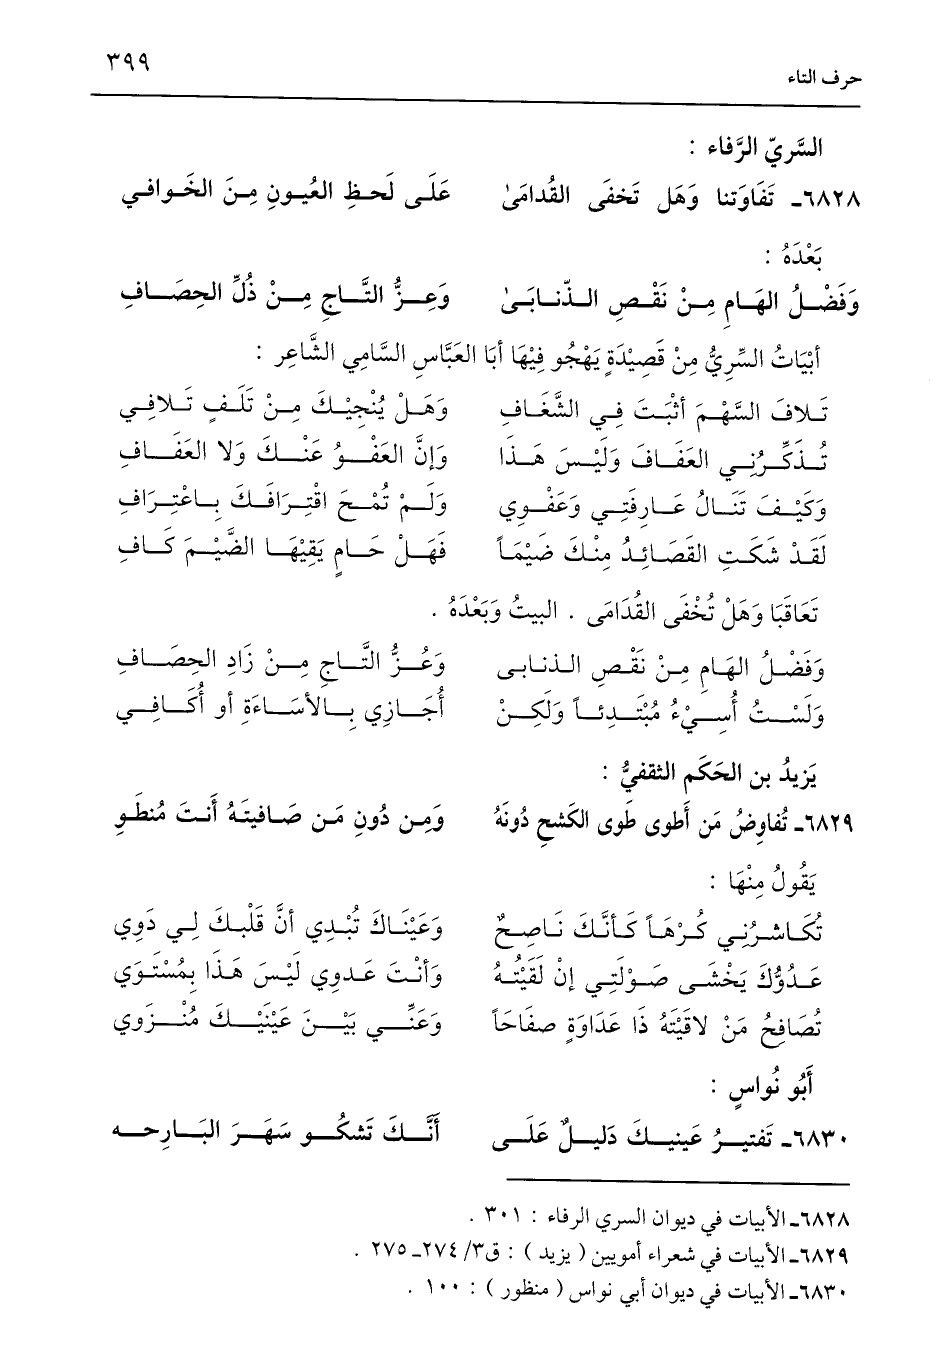 ٣٩٩
حرف التاء
السَّريّ الرَّفاء :
٦٨٢٨ـ تَفَاوَتنا وَهَل تَخفَى القُدامَىٰ عَلَى لَحظِ العُيونِ مِنَ الخَوافي
بَعْدَهُ :
وَفَضْلُ الهَامِ مِنْ نَقْصِ الذّنابَىٰ وَعِزُّ التَّاجِ مِنْ ذُلِّ الخِصَافِ
أبْيَاتُ السِّريُّ مِنْ قَصِيْدَةٍ يَهْجُو فِيْهَا أبَا العَبَّاسِ السَّامِي الشَّاعِرِ :
تَلافَ السَّهْمَ أثْبَتَ فِي الشَّغَافِ وَهَلْ يُنْجِيْكَ مِنْ تَلَفٍ تَلافِي
تُذَكِّرُنِي العَفَافَ وَلَيْسَ هَذَا وَإنَّ العَفْوُ عَنْكَ وَلا العَفَافِ
وَكَيْفَ تَنَالُ عَارِفَتِي وَعَفْوِي وَلَمْ تُمْحَ اقْتِرَافَكَ بِاعْتِرَافِ
لَقَدْ شَكَتِ القَصَائِدُ مِنْكَ ضَيْمَاً فَهَلْ حَامٍ يَقِيْهَا الضَّيْمَ كَافِ
تَعَاقَبَا وَهَلْ تُخْفَى القُدَامَى . البيتُ وَبَعْدَهُ .
وَفَضْلُ الهَامِ مِنْ نَقْصِ الذنابى وَعُزُّ التَّاجِ مِنْ زَادِ الخِصَافِ
وَلَسْتُ أُسِيْءُ مُبْتَدِئاً وَلَكِنْ أُجَازِي بِالأسَاءَةِ أو أُكَافِي
يَزيدُ بن الحَكَم الثقفيُّ :
٦٨٢٩ـ تُفاوِضُ مَن أَطوى طَوى الكَشحِ دُونَهُ وَمِن دُونِ مَن صَافيتَهُ أَنتَ مُنطَوِ
يَقُولُ مِنْهَا :
تُكَاشِرُنِي كُرْهَاً كَأنَّكَ نَاصِحٌ وَعَيْنَاكَ تُبْدِي أنَّ قَلْبَكَ لِي دَوِي
عَدُوُّكَ يَخْشَى صَوْلَتِي إنْ لَقَيْتُهُ وَأنْتَ عَدوي لَيْسَ هَذا بِمُسْتَوَي
تُصَافِحُ مَنْ لاقَيْتَهُ ذَا عَدَاوَةٍ صفَاحَاً وَعَنِّي بَيْنَ عَيْنَيْكَ مُنْزوي
أَبُو نُواسٍ :
٦٨٣٠ـ تَفتيرُ عَينيكَ دَليلٌ عَلَى أَنَّكَ تَشكُو سَهَرَ البَارحه
٦٨٢٨ـ الأبيات في ديوان السري الرفاء : ٣٠١ .
٦٨٢٩ـ الأبيات في شعراء أمويين ( يزيد ) : ق٣/ ٢٧٤ـ ٢٧٥ .
٦٨٣٠ـ الأبيات في ديوان أبي نواس ( منظور ) : ١٠٠ .